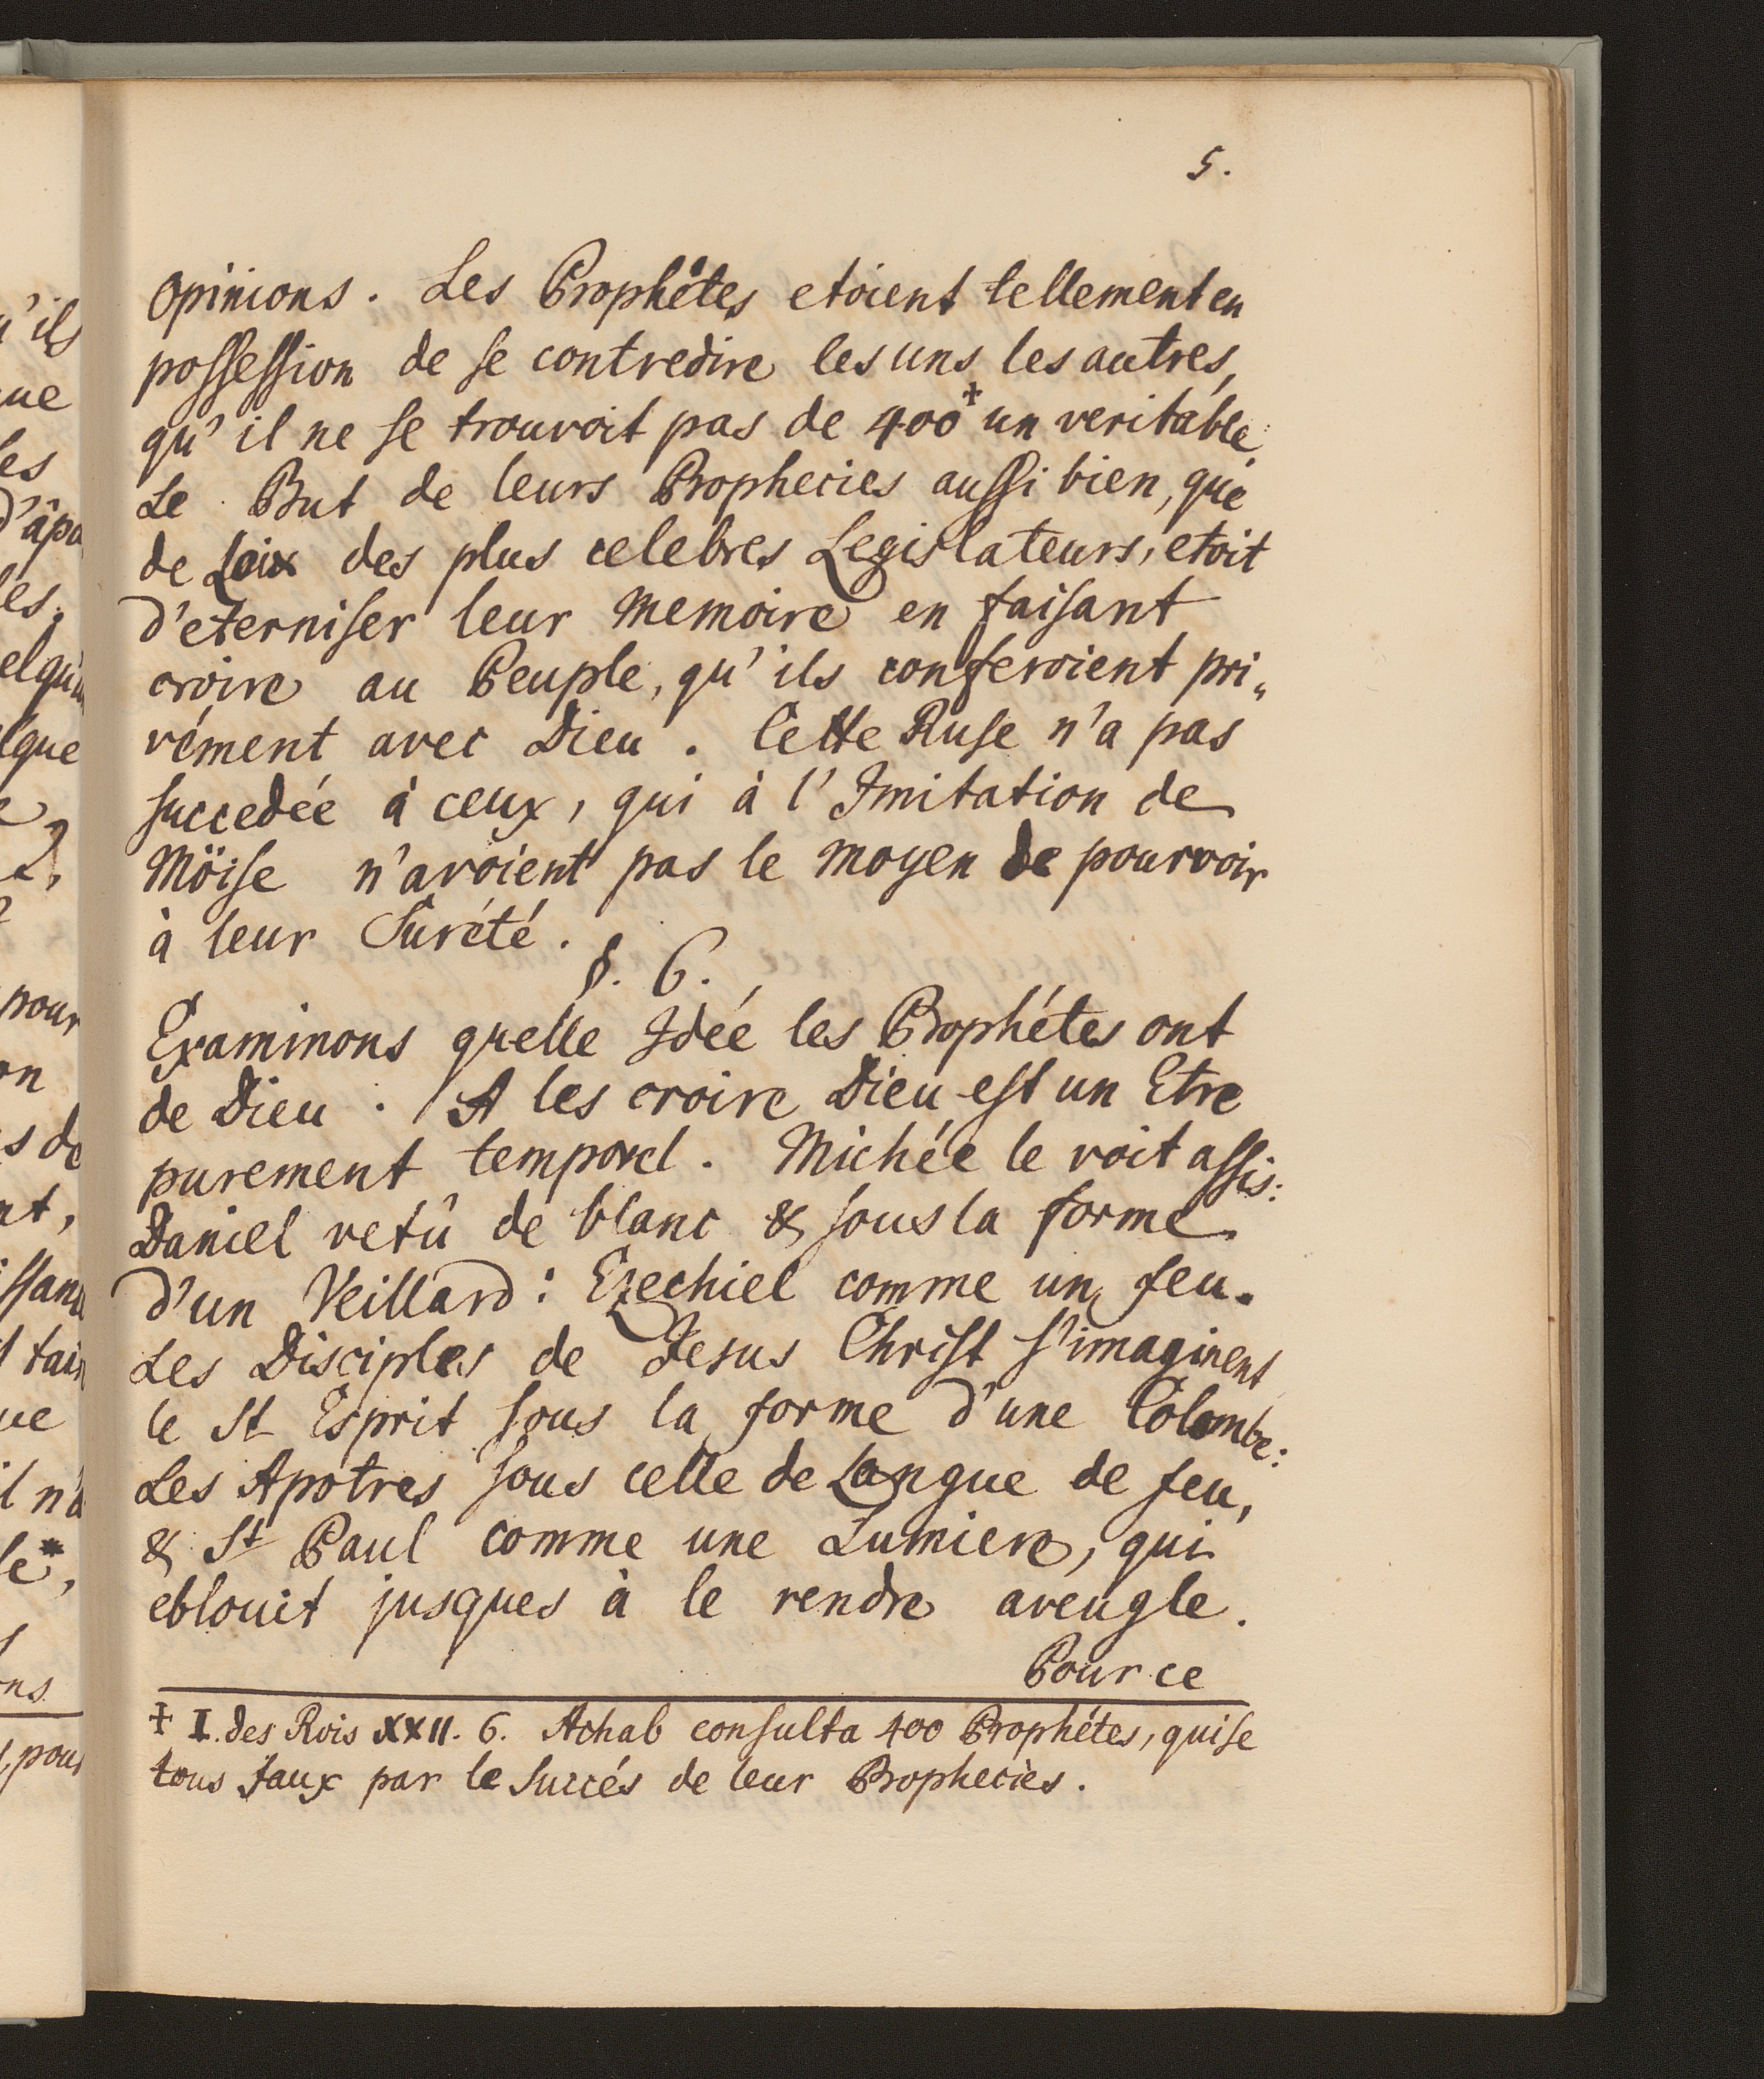 5.
opinions. Les Prophétes etoient tellement en
possession de se contredire les uns les autres,
qu'il ne se trouvoit pas de 400+ un veritable.
Le But de leurs Prophecies aussi bien, que
de Loix des plus celebres Legislateurs, etoit
d'eterniser leur Memoire en faisant
croire au Peuple, qu'ils conferoient pri„
vément avec Dieu. Cette Ruse n'a pas
succedée à ceux, qui à l'Imitation de
Möise n'avoient pas le moyen de pourvoir
à leur Sureté.
§. 6.
Examinons quelle Idée les Prophétes ont
de Dieu. A les croire Dieu est un Etre
purement temporel. Michée le voit assis:
Daniel vetû de blanc & sous la forme
d'un Veillard: Ezechiel comme un feu.
Les Disciples de Jesus Christ s'imaginent
le St Esprit sous la forme d'une Colombe:
Les Apotres sous celle de Langue de feu,
& St Paul comme une Lumiere, qui
eblouit jusques à le rendre aveugle.
Pour ce
+ I. des Rois XXII. 6. Achab consulta 400 Prophétes, qui se
tous faux par le Succés de leur Prophecies.